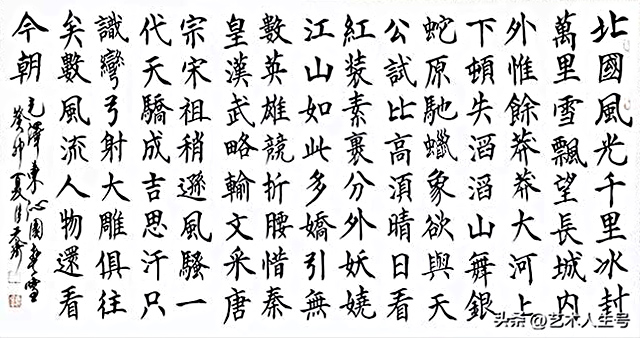 北國風光千里冰封
萬里雪飄望長城内
外惟餘莽莽大河上
下頓失滔滔山舞銀
蛇原馳蠟象欲與天
公試比高湏晴日看
紅裝素裹分外妖嬈
江山如此多嬌引無
數英雄競折腰惜秦
皇漢武略輸文采唐
宗宋祖稍遜風騷一
代天驕成吉思汗只
識彎弓射大雕俱往
矣數風流人物還看
今朝
毛澤東沁園春雪
癸卯夏月
头条 @艺术人生号